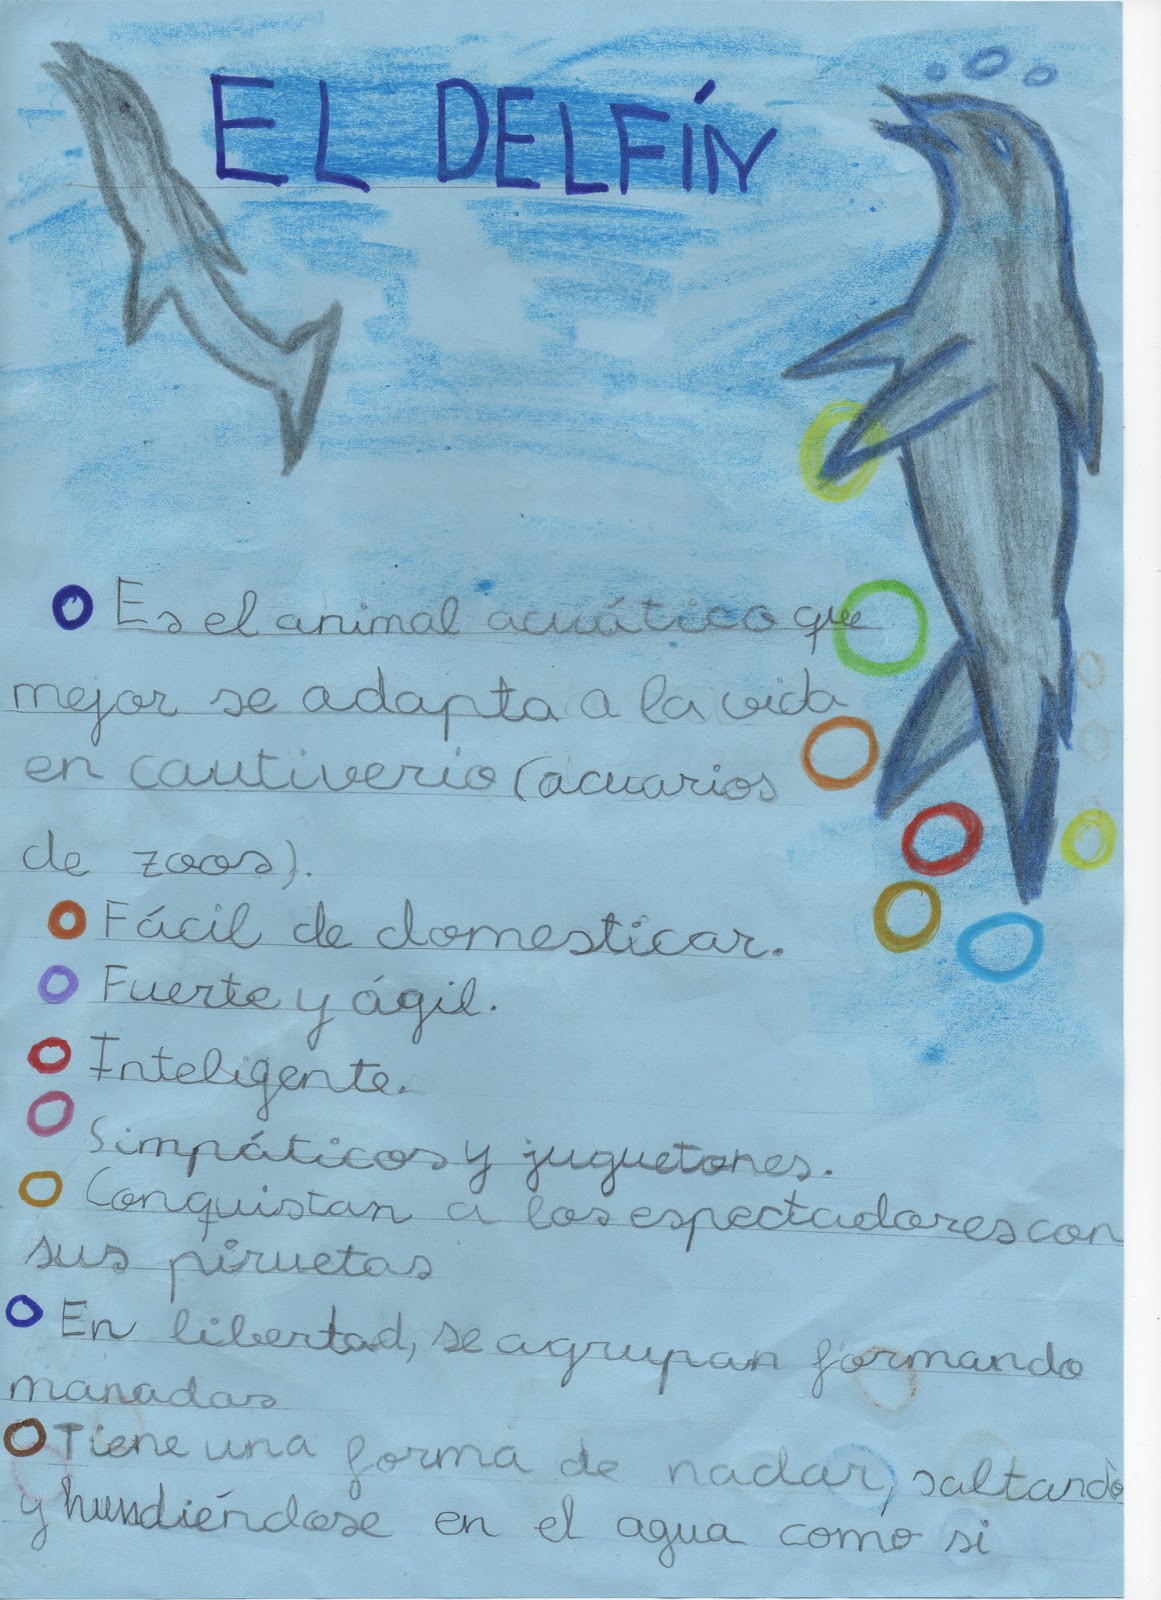 EL DELFÍN
Es el animal acuático que
mejor se adapta a la vida
en cautiverio (acuarios
de zoos).
Fácil de domesticar.
Fuerte y ágil.
Inteligente.
Simpáticos y juguetones.
Conquistan a los espectadores con
sus piruetas
En libertad, se agrupan formando
manadas
Tiene una forma de nadar, saltando
y hundiéndose en el agua como si